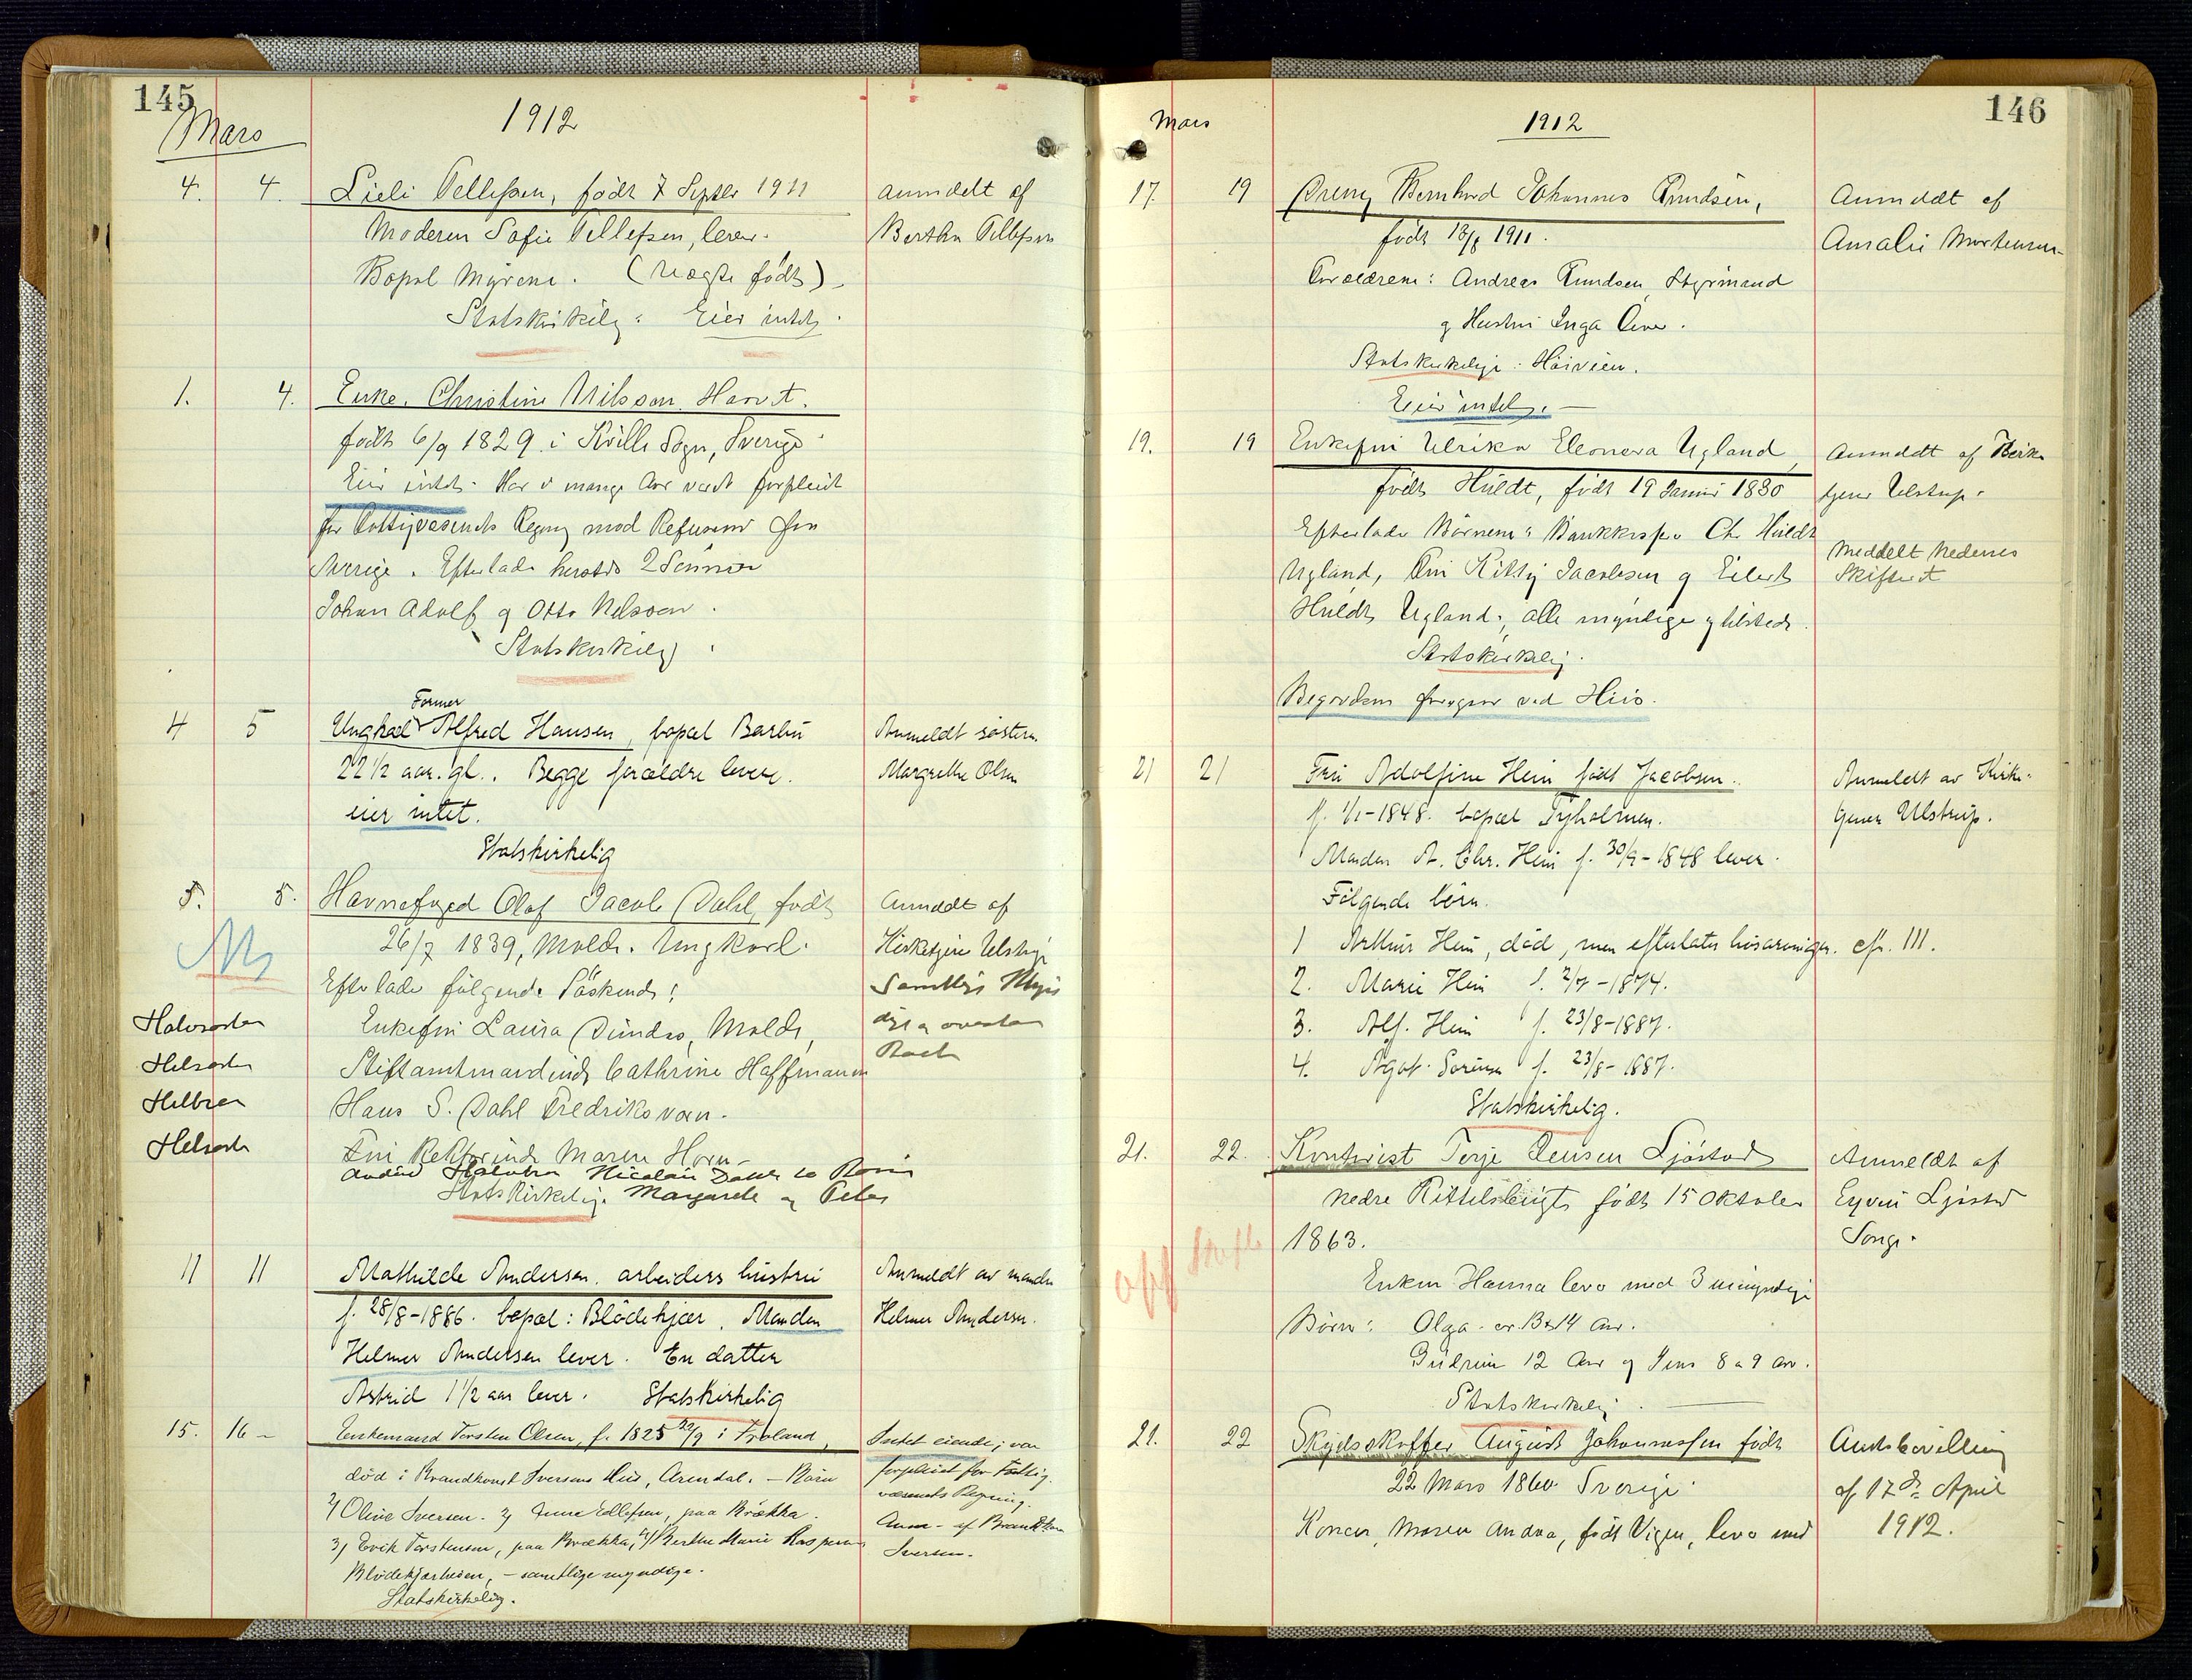 145
Mars
1912
4. 4. Lieli Tellefsen, födt 7 Septbr 1911
Moderen Sofie Tellefsen, lever.
Bopal Myrene. (Uægte födt)
Statskirkelig. Eier intet.
anmeldt af
Bertha Tellefsen
1. 4. Enke Christine Nilsson Harvt.
födt 6/9 1829 i Kville Sogn, Sverige
Eier intet. Har i mange Aar været forpleiet
for Fattigvæsenets Regng mod Refusion fra
Sverige. Efterlader herstds 2 Sönner
Johan Adolf og Otto Nilsson.
Statskirkelig
4 5 Ungkarl Former Alfred Hansen, bopæl Barbu
22 1/2 aar. gl. Begge forældre lever.
eier intet.
Statskirkelig
Anmeldt söstern
Margrethe Olsen
5. 5. Havnefoged Olaf Jacob Dahl, födt
26/7 1839, Molde. Ungkarl.
Efterlader fölgende Söskende:
Halvsöster Enkefru Laura Dundas, Molde,
Helsöster Stiftamtmandinde Cathrine Hoffmann
Helbror Hans S. Dahl Fredriksværn.
Helsöster Fru Rektorinde Maren Horn
Nicolai Dahls
Statskirkelig. Margarete og Peter
Anmeldt af
Kirketjener Ulstrup
11 11 Mathilde Andersen. arbeiders hustru
f. 28/8-1886. bopæl: Blödekjær. Manden
Helmer Andersen lever. En datter
Astrid 1 1/2 aar lever. Statskirkelig
Anmeldt av manden
Helmer Andersen.
15. 16 - Enkemand Torsten Olsen, f. 1825 22/9 i Froland,
död i Brandkonst Iversens Hus, Arendal. - Börn
1) Olive Iversen. 2) Anne Edlefsen, paa Brække.
3) Erik Torstensen, paa Brækka, 4) Berthe Marie Kaspersen
Blödekjærheien, - samtlige myndige.
Statskirkelig.
Intet eiende; var
forpleiet for Fattig-
væsenets Regning.
Anm. af Brandkon
Iversen.
146
Mars
1912
17. 19 Bernhard Johannes Knudsen,
födt 13/8 1911.
Forældrene: Andreas Knudsen, Styrmand
og Hustru Inga
Statskirkelige. Höiveien.
Eier intet.
Anmeldt af
Amalie Mortensen
19. 19 Enkefru Ulrika Eleonora Ugland
födt Huldt, födt 19 Januar 1830
Efterlader Börnene: Bankkasser Chr Huldt
Ugland, Fru Kitty Jacobsen og Eilert
Huldt Ugland; alle myndige og tilstede.
Statskirkelig.
Begravelsen foregaar ved Hiis.
Anmeldt af Kirke
tjener Ulstrup.
Meddelt Nedenes
Skifteret
21 21 Fru Adolfine Hein födt Jacobsen.
f. 1/1-1848. bopæl Tyholmen.
Manden A. Chr. Hein f. 30/9-1848 lever.
Fölgende börn.
1 Arthur Hein, död, men efterlater livsarvinger. cfr. 111.
2. Marie Hein f. 2/7-1874.
3. Alf. Hein f. 23/8-1887.
4. Agat. Sörine f. 23/8-1887.
Statskirkelig.
Anmeldt av Kirke-
tjener Ulstrup.
21. 22. Kontorist Terje Jensen Ljöstad
nedre Kittelsbugt födt 15 Oktober
1863.
Enken Hanna lever med 3 umyndige
Börn: Olga er 13 a 14 Aar.
Gudrun 12 Aar og Jens 8 a 9 Aar.
Statskirkelig.
Anmeldt af
Eyvin Ljöstad
Songe.
21. 22 Skydsskaffer August Johannessen födt
22 Mars 1860 Sverige
Konen, Maren Andrea, födt Vigen, lever med
Amtsbevilling
af 17de April
1912.